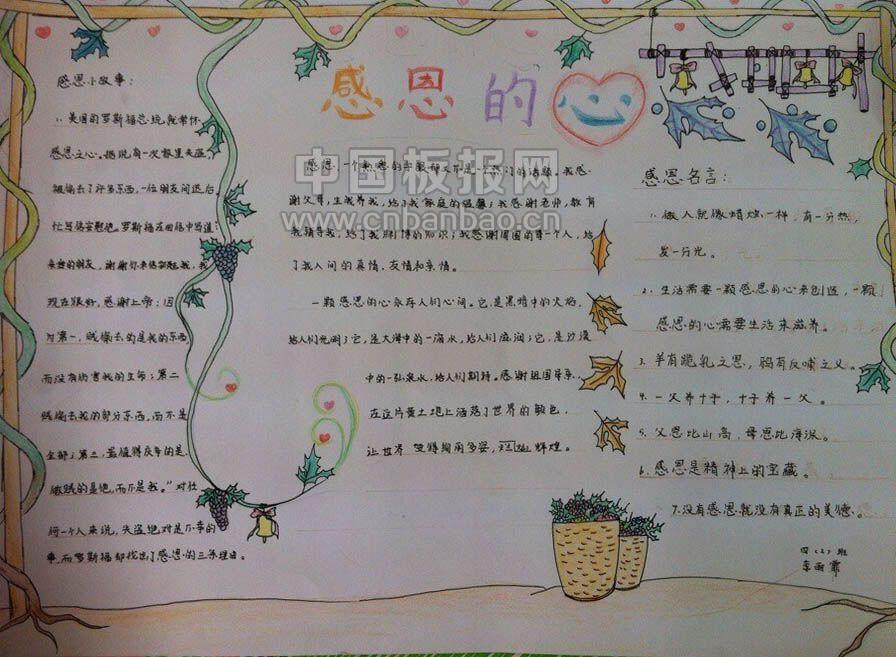 感恩的心
感恩小故事：
1、美国的罗斯福总统就常怀
感恩之心。据说有一次家里失盗，
被偷去了许多东西，一位朋友闻讯后，
忙写信安慰他。罗斯福在回信中写道：
亲爱的朋友，谢谢你来信安慰我，我
现在很好，感谢上帝：因
为第一，贼偷去的是我的东西
而没有伤害我的生命；第二
贼偷去我的部分东西，而不是
全部；第三，最值得庆幸的是
做贼的是他，而不是我。”对任
何一个人来说，失盗绝对是不幸的
事，而罗斯福却找出了感恩的三条理由。
感恩，一个熟悉的字眼却又不是一个热门的话题。我感
谢父母，生我养我，给了我家庭的温馨；我感谢老师，教育
我辅导我，给了我渊博的知识；我感谢周围的每一个人，给
了我人间的真情、友情和亲情。
一颗感恩的心永存人们心间。它，是黑暗中的火焰，
给人们光明；它，是大海中的一滴水，给人们滋润；它，是沙漠
中的一弘泉水，给人们期待。感谢祖国母亲，
在这片黄土地上洒落了世界的颜色，
让世界变得绚丽多姿，灿烂辉煌。
感恩名言：
1、做人就像蜡烛一样，有一分热，
发一分光。
2、生活需要一颗感恩的心来创造，一颗
感恩的心需要生活来滋养。
3、羊有跪乳之恩，鸦有反哺之义。
4、一父养十子，十子养一父。
5、父恩比山高，母恩比海深。
6、感恩是精神上的宝藏。
7、没有感恩就没有真正的美德。
四（2）班
李雨霏
中国板报网
www.cnbanbao.cn